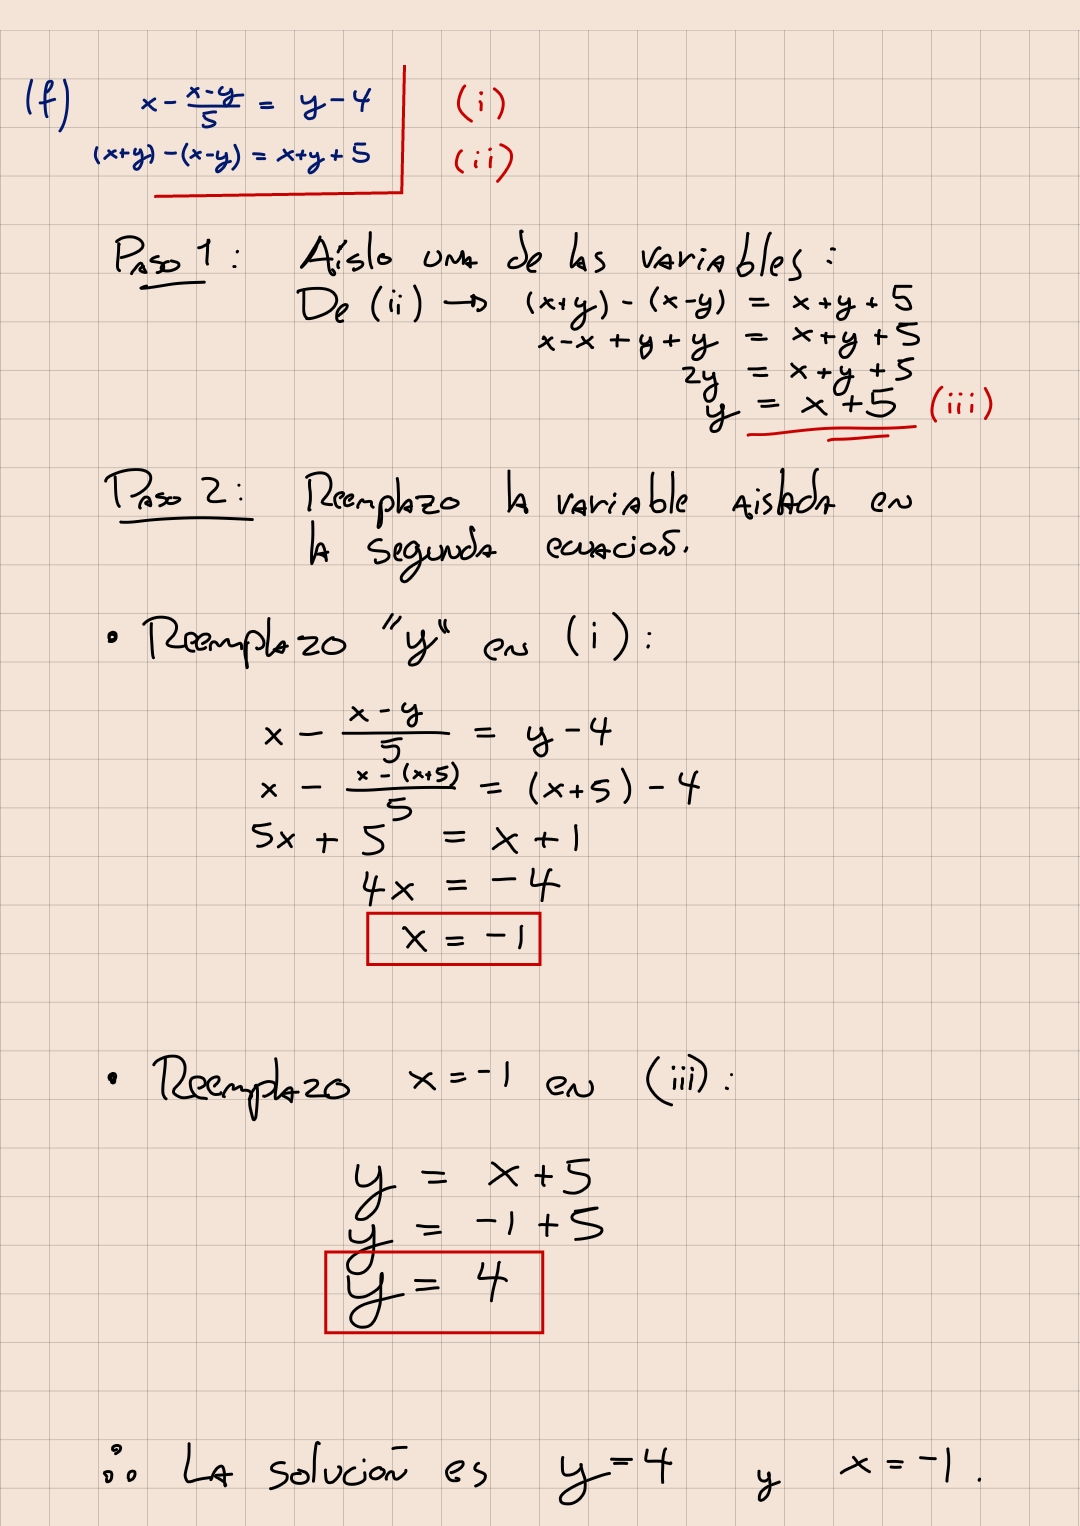 (f) x - (x-y)/5 = y - 4 (i)
(x+y) - (x-y) = x+y+5 (ii)
Paso 1: Aíslo una de las variables:
De (ii) → (x+y) - (x-y) = x+y+5
x-x+y+y = x+y+5
2y = x+y+5
y = x+5 (iii)
Paso 2: Reemplazo la variable aislada en
la segunda ecuación.
• Reemplazo "y" en (i):
x - (x-y)/5 = y-4
x - (x-(x+5))/5 = (x+5)-4
5x + 5 = x+1
4x = -4
x = -1
• Reemplazo x = -1 en (iii):
y = x+5
y = -1+5
y = 4
∴ La solución es y=4 y x=-1.